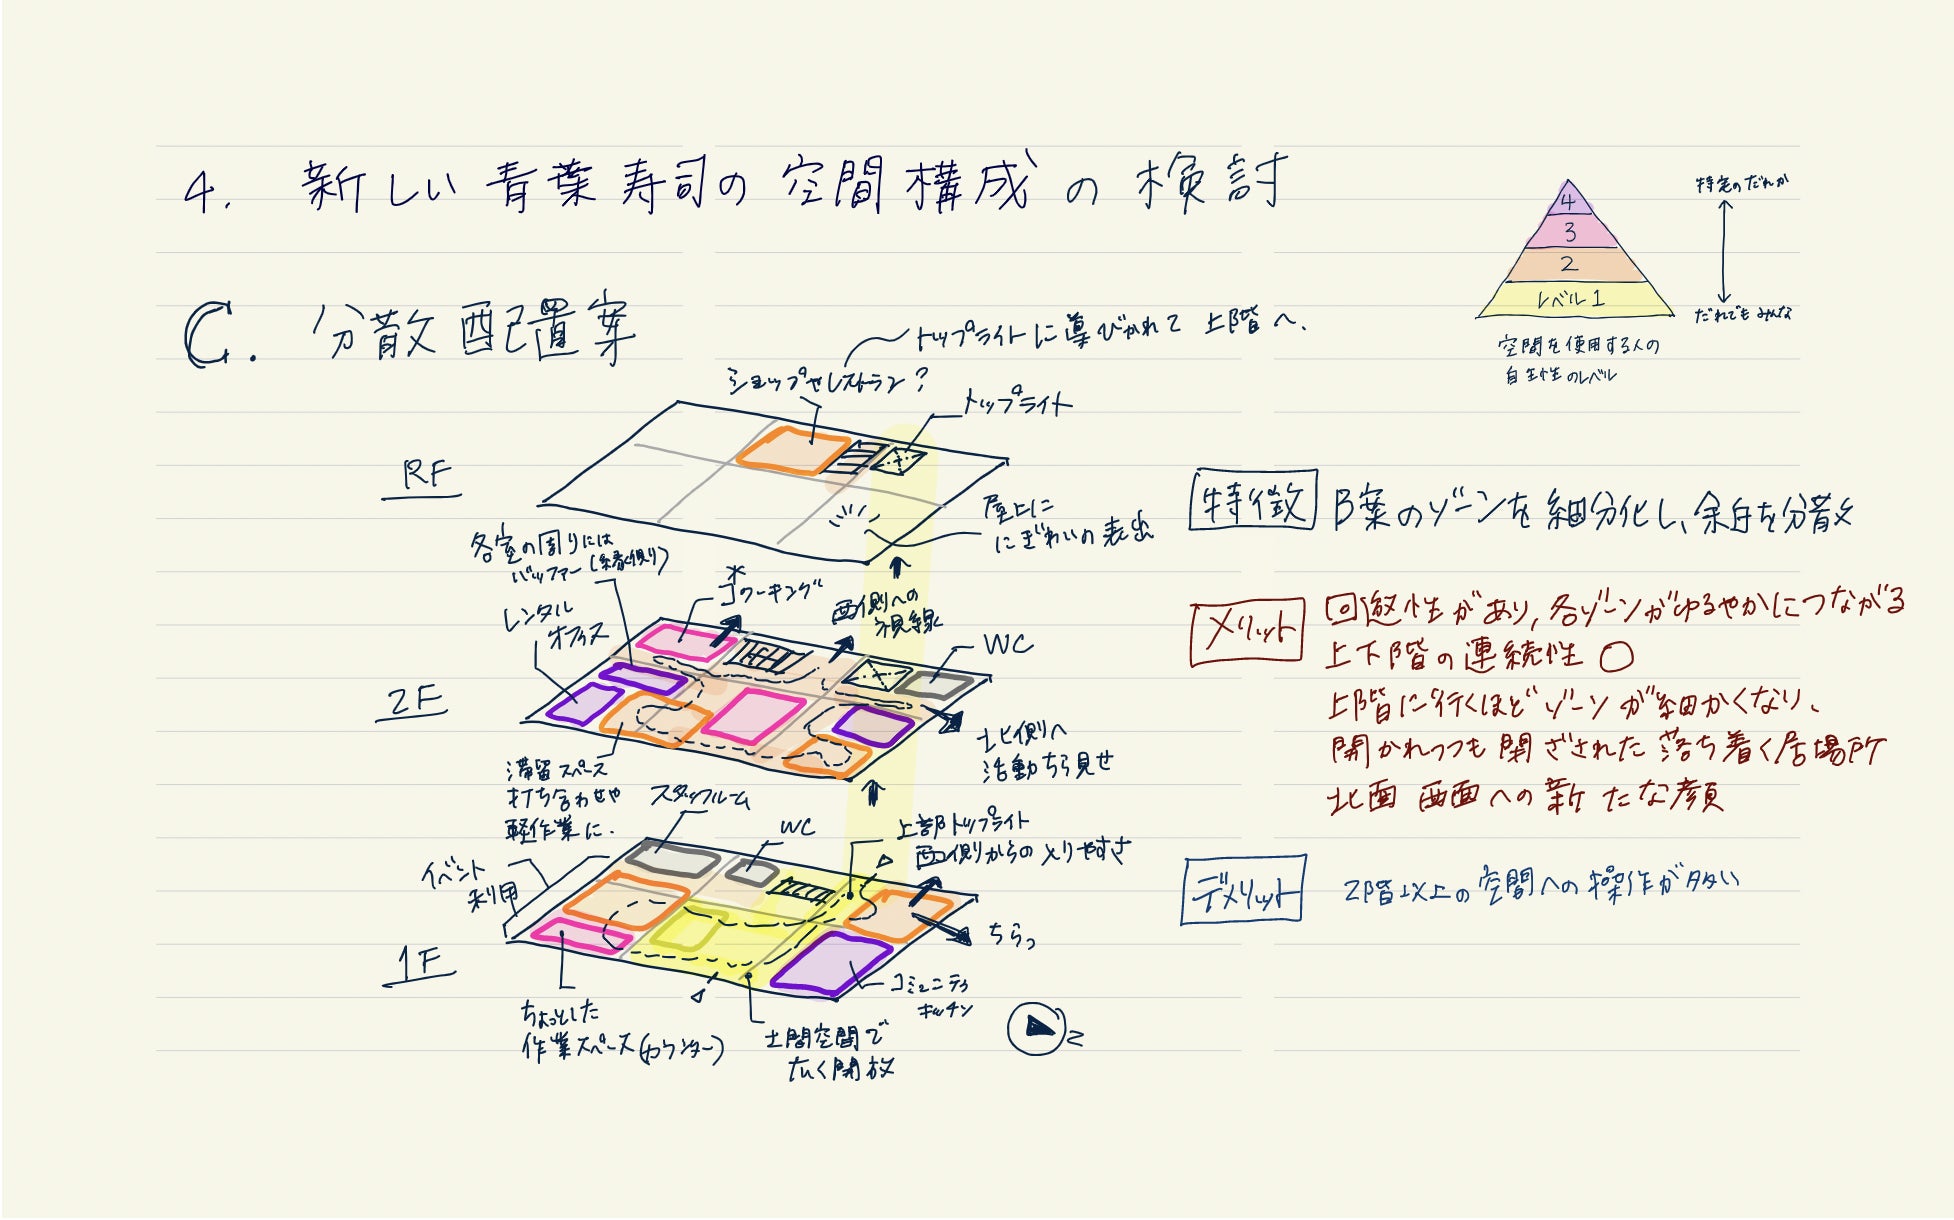 4. 新しい青葉寿司の空間構成の検討
C. 分散配置案
特定のだれか
4
3
2
レベル1
だれでも みんな
空間を使用する人の
自主性のレベル
トップライトに導びかれて 上階へ、
ショップやレストラン?
トップライト
RF
屋上に
にぎわいの表出
各室の周りには
バッファー(縁側)
レンタル
オフィス
コワーキング
西側への
視線
WC
2F
北側へ
活動ちら見せ
滞留スペース
打ち合わせや
軽作業に.
スタッフルーム
WC
上部トップライト
西側からの入りやすさ
イベント
利用
1F
ちらっ
コミュニティ
キッチン
ちょっとした
作業スペース(カウンター)
土間空間で
広く開放
Z
特徴 B案のゾーンを細分化し、余白を分散
メリット 回遊性があり、各ゾーンがゆるやかにつながる
上下階の連続性 ○
上階に行くほどゾーンが細かくなり、
開かれつつも閉ざされた落ち着く居場所
北面 西面への新たな顔
デメリット 2階以上の空間への操作が多い